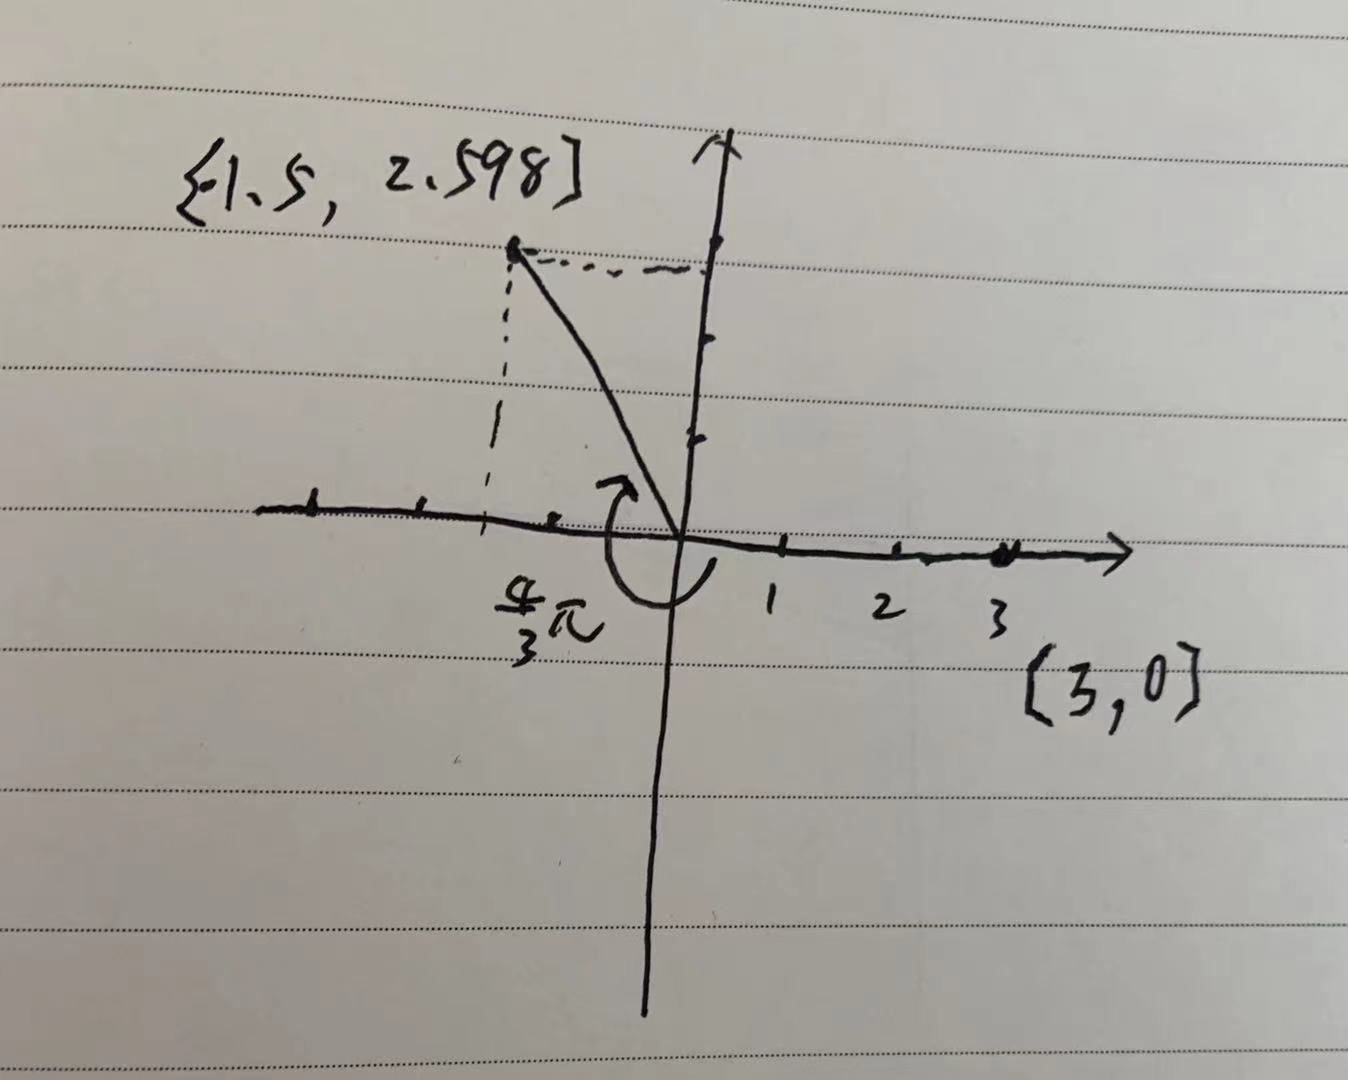 [-1.5, 2.598]
1 2 3
4/3 π
[3,0]